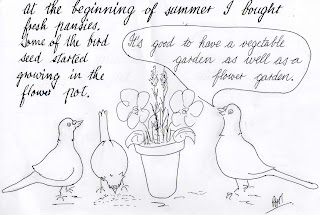 At the beginning of summer I bought
fresh pansies.
Some of the bird
seed started
growing in the
flower pot.
It's good to have a vegetable
garden as well as a
flower garden.